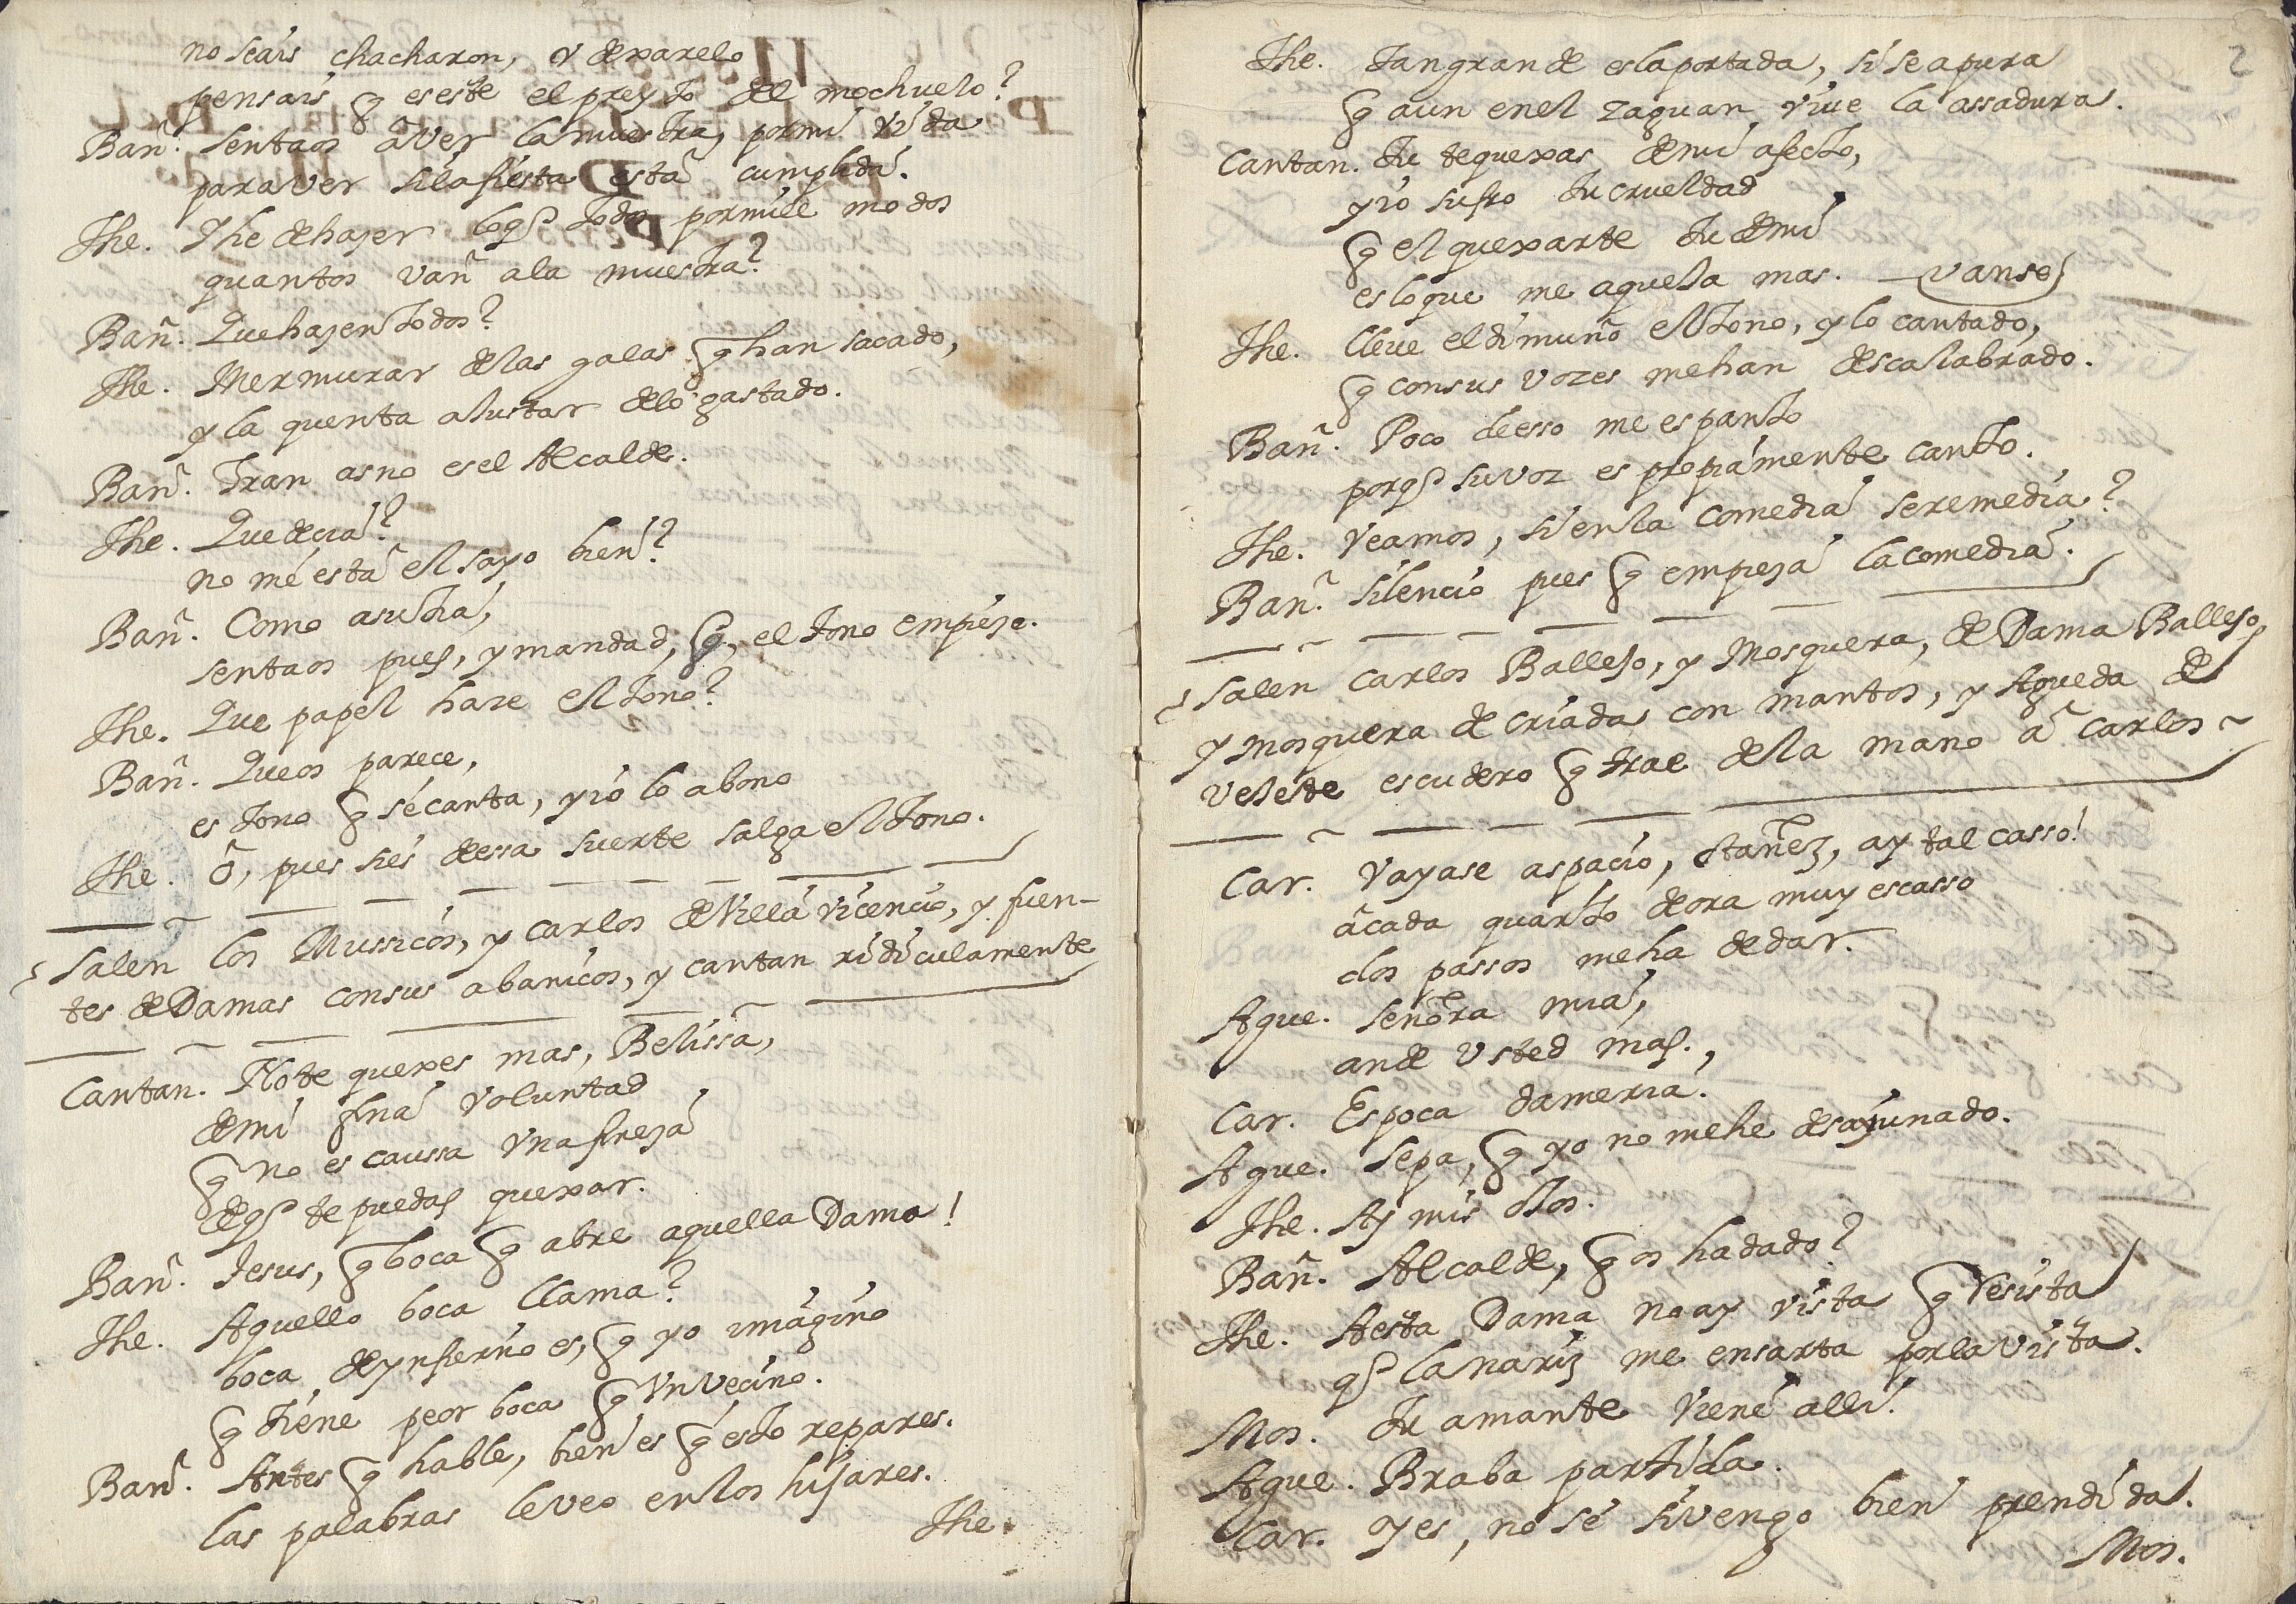 no seais chacharon, y dexarelo
pensais q es este el pleyto del mochuelo?
Bañ. sentaos à ver la muestra, por mi vida
para ver si la fiesta està cumplida.
The. Y he de hazer lo q todos por mill modos
quantos van a la muestra?
Bañ. Que hazen todos?
The. Mermurar de las galas q han sacado,
y la quenta alustar de lo gastado.
Bañ. Fran asno es el Alcalde.
The. Que decia?
no me està el sayo bien?
Bañ. Como a su tia,
sentaos pues, y mandad, q, el tono empieze.
The. Que papel haze el tono?
Bañ. Que os parece,
es tono q se canta, y io lo abono
The. ô, pues si es dessa suerte salga el tono.
Salen los Mussicos, y Carlos de Villa Vicencio, y fuen-
tes de Damas con sus abanicos, y cantan ridiculamente
Cantan. No te quexes mas, Belissa,
de mi fina voluntad
q no es caussa vna fineza
de q te puedas quexar.
Bañ. Jesus, q boca q abre aquella Dama!
The. Aquello boca llama?
boca de ynfierno es, q yo imagino
q tiene peor boca q vn vecino.
Bañ. Antes q hable, bien es q esto repares.
las palabras le veo en los hijares.
The.
2
The. Tan grande es la portada, si se apura
q aun en el zaguan viue la assadura.
Cantan. Tu te quexas de mi afecto,
y io sufro tu crueldad
q el quexarte tu de mi
es lo que me aquexa mas. Vanse
The. lleue el dimuño el tono, y lo cantado,
q con sus vozes me han descalabrado.
Bañ. Poco de esso me espanto
porq su voz es propiamente canto.
The. Veamos, si en la comedia se remedia?
Bañ. Silencio pues q empieza la comedia.
Salen Carlos Ballejo, y Mosquera, de Dama Ballejo,
y mosquera de criada con mantos, y Agueda de
vejete escudero q trae de la mano à Carlos
Car. Vayase aspacio, Otañez, ay tal casso!
à cada quarto de ora muy escasso
dos passos me ha de dar.
Ague. Señora mia,
ande Vsted mas.,
Car. Es poca dameria.
Ague. Sepa, q yo no me he desayunado.
The. Ay mis ojos.
Bañ. Alcalde, q os ha dado?
The. A esta Dama no ay vista q resista
q la nariz me ensarta por la vista.
Mos. Tu amante viene alli.
Ague. Braba partida.
Car. Yes, no sé si vengo bien prendida.
Mos.